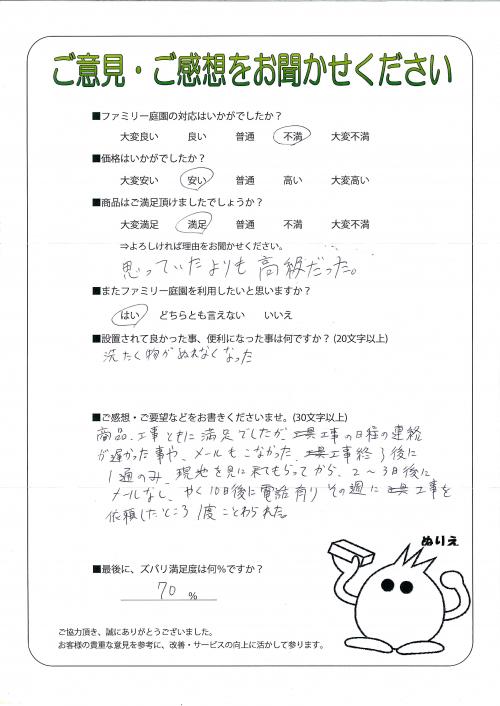 ご意見・ご感想をお聞かせください
■ファミリー庭園の対応はいかがでしたか？
大変良い 良い 普通 不満 大変不満
■価格はいかがでしたか？
大変安い 安い 普通 高い 大変高い
■商品はご満足頂けましたでしょうか？
大変満足 満足 普通 不満 大変不満
⇒よろしければ理由をお聞かせください。
思っていたよりも高級だった。
■またファミリー庭園を利用したいと思いますか？
はい どちらとも言えない いいえ
■設置されて良かった事、便利になった事は何ですか？(20文字以上)
洗たく物がぬれなくなった
■ご感想・ご要望などをお書きくださいませ。(30文字以上)
商品、工事ともに満足でしたが、工事の日程の連絡
が遅かった事や、メールもこなかった、工事終了後に
1通のみ、現地を見に来てもらってから、2～3日後に
メールなし、やく10日後に電話有りその週に工事を
依頼したところ1度ことわられた。
ぬりえ
■最後に、ズバリ満足度は何％ですか？
70 ％
ご協力頂き、誠にありがとうございました。
お客様の貴重な意見を参考に、改善・サービスの向上に活かして参ります。